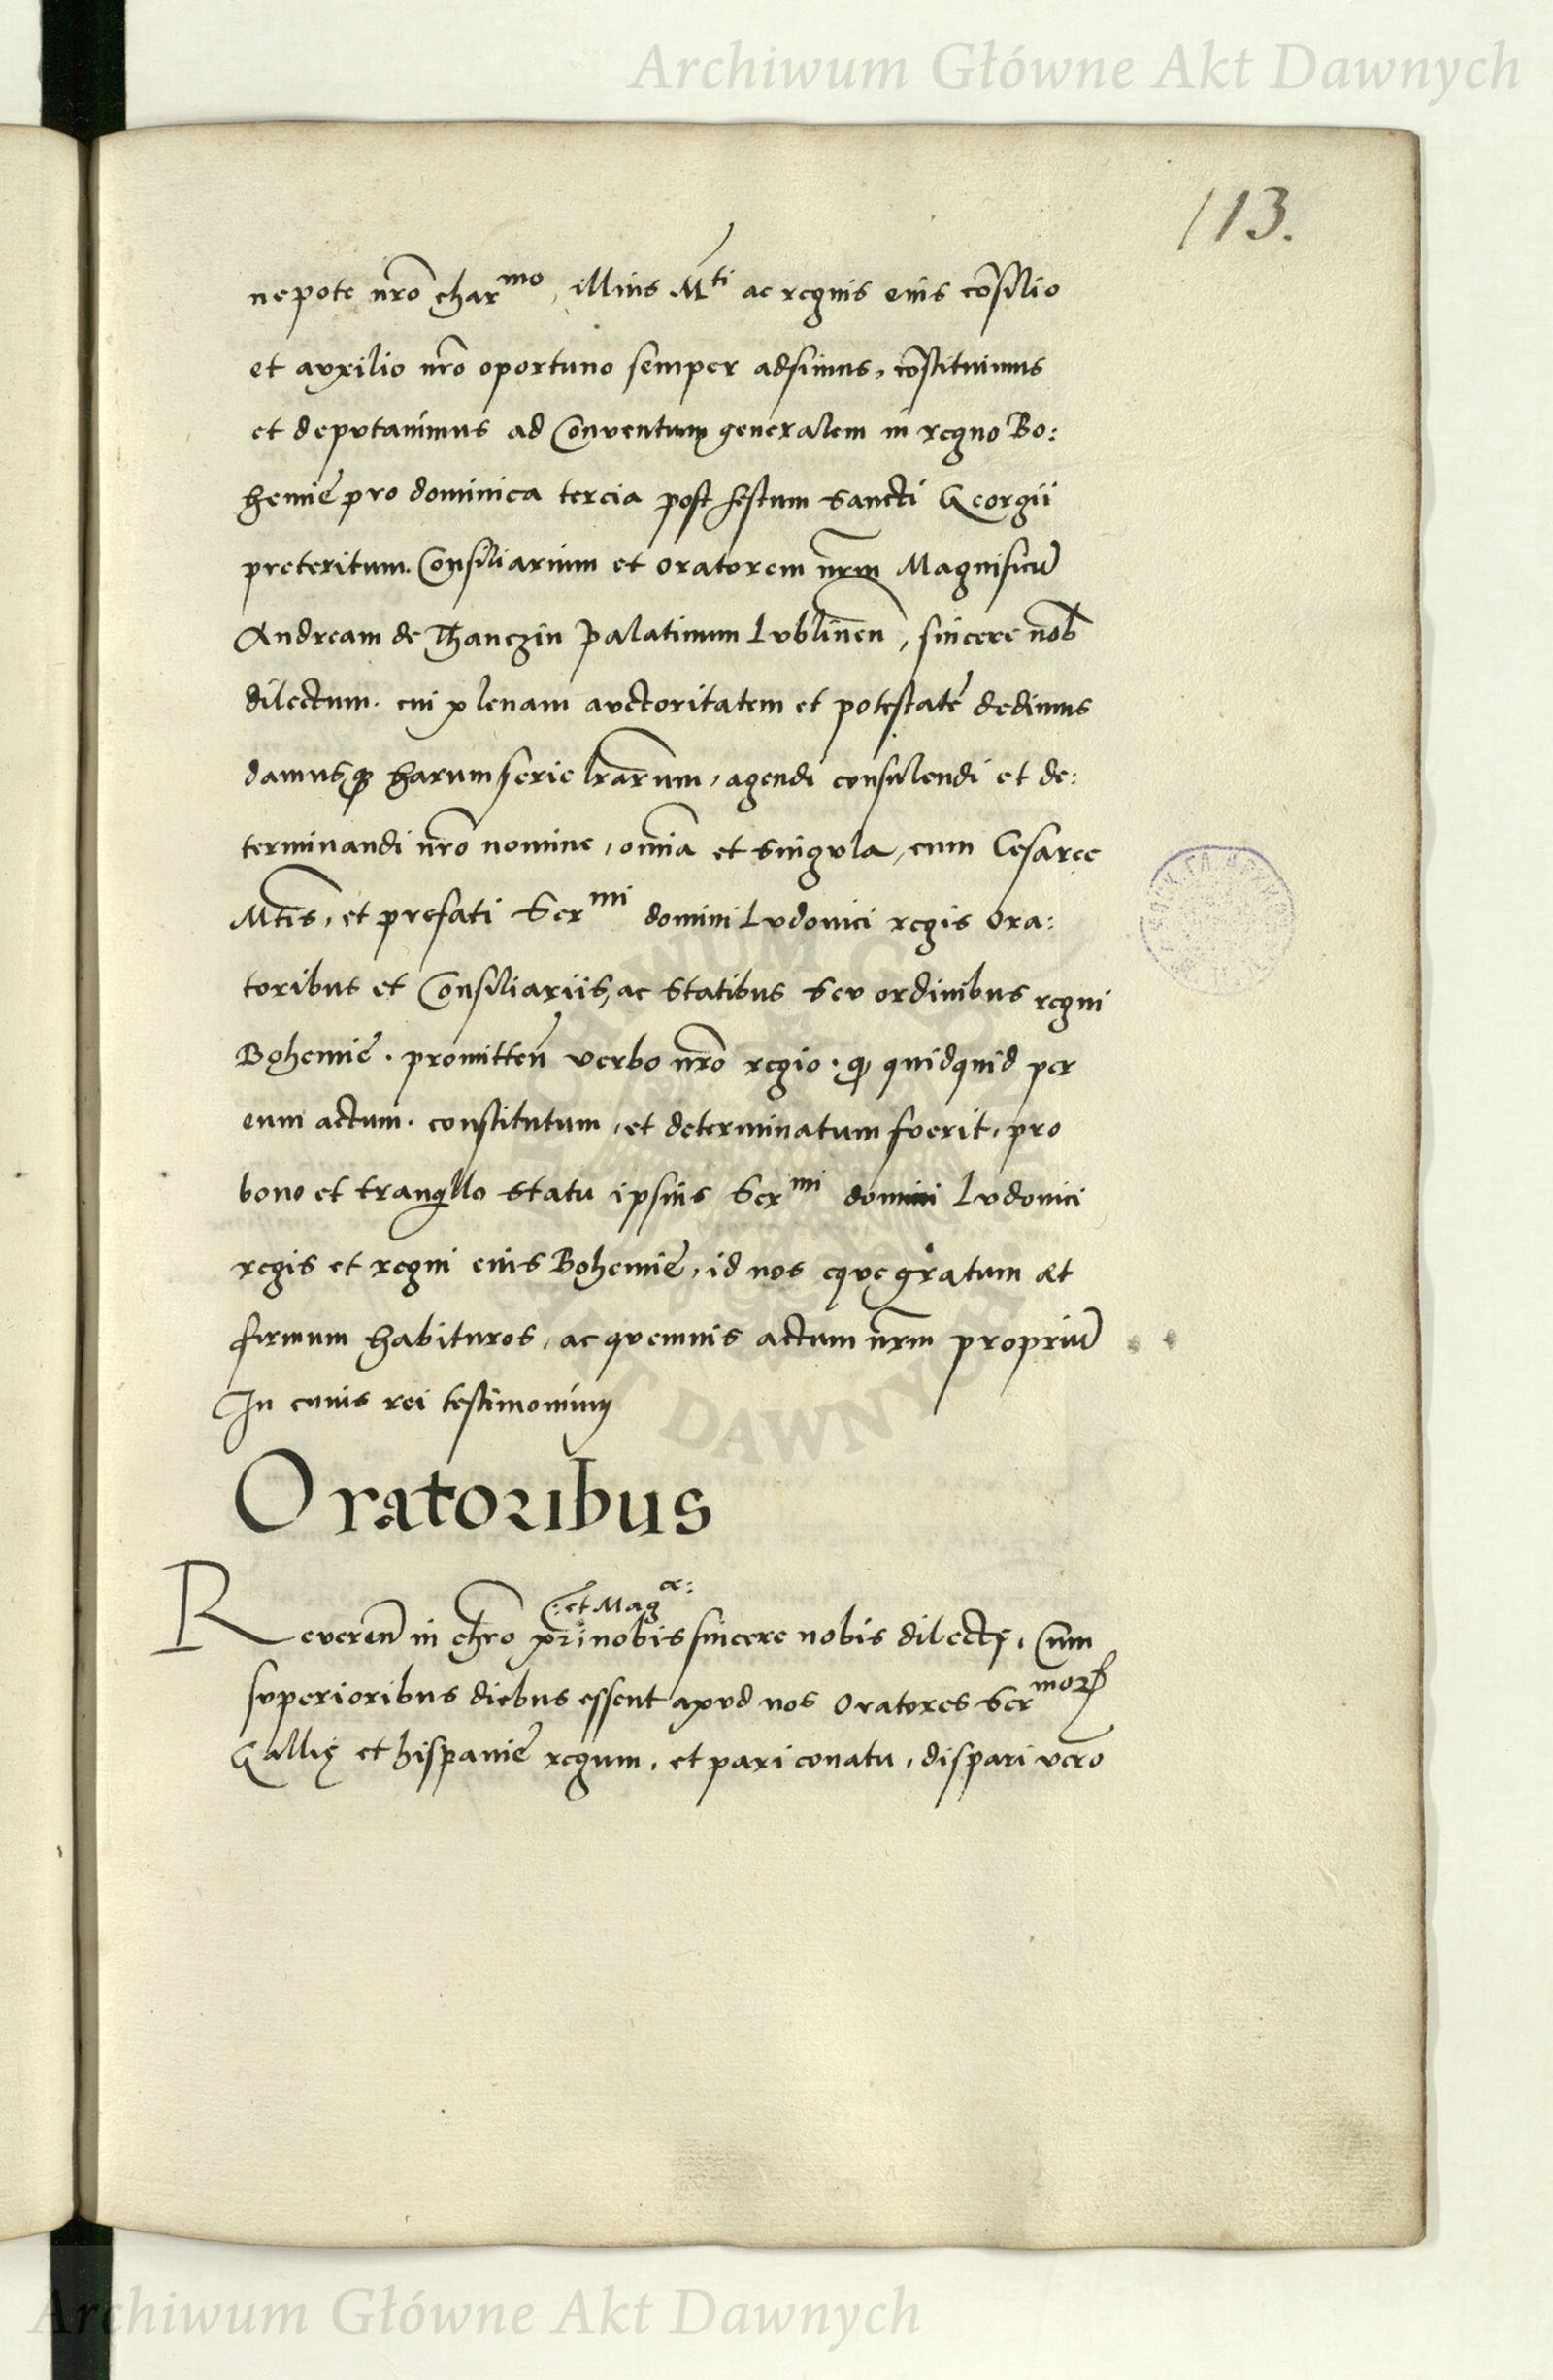 Archiwum Główne Akt Dawnych
113.
nepote nr̄o char^mo, illius M^ti ac regnis eius cōsilio
et auxilio nr̄o oportuno semper adsimus, cōstituimus
et deputauimus ad Conuentum generalem in regno Bo:
hemiē pro dominica tercia post festum Sancti Georgii
preteritum. Consiliarium et oratorem nr̄m Magnificū
Andream de Thanczin Palatinum Lublinen̄, sincere nob̄
dilectum. cui plenam auctoritatem et potestatē dedimus
damusq₃ harum serie lr̄arum, agendi consulendi et de:
terminandi nr̄o nomine, om̄ia et singula, cum Cesaree
Mt̄is, et prefati Ser^mi domini Ludouici regis Ora:
toribus et Consiliariis, ac Statibus Seu ordinibus regni
Bohemiē. promitten̄ verbo nr̄o regio. q₃ quidquid per
eum actum. constitutum, et determinatum fuerit, pro
bono et tranq̇llo statu ipsius Ser^mi domini Ludouici
regis et regni eius Bohemiē, id nos eque gratum et
firmum habituros, ac quemuis actum nr̄m propriū
In cuius rei testimonium
Oratoribus
(: et Mag^ce:
Reueren̄ in chr̄o pr̄i nobis sincere nobis dilectę, Cum
superioribus diebus essent apud nos Oratores Ser^morꝝ
Gallię et hispaniē regum, et pari conatu, dispari vero
ARCHIWUM GŁÓWNE AKT DAWNYCH
Archiwum Główne Akt Dawnych